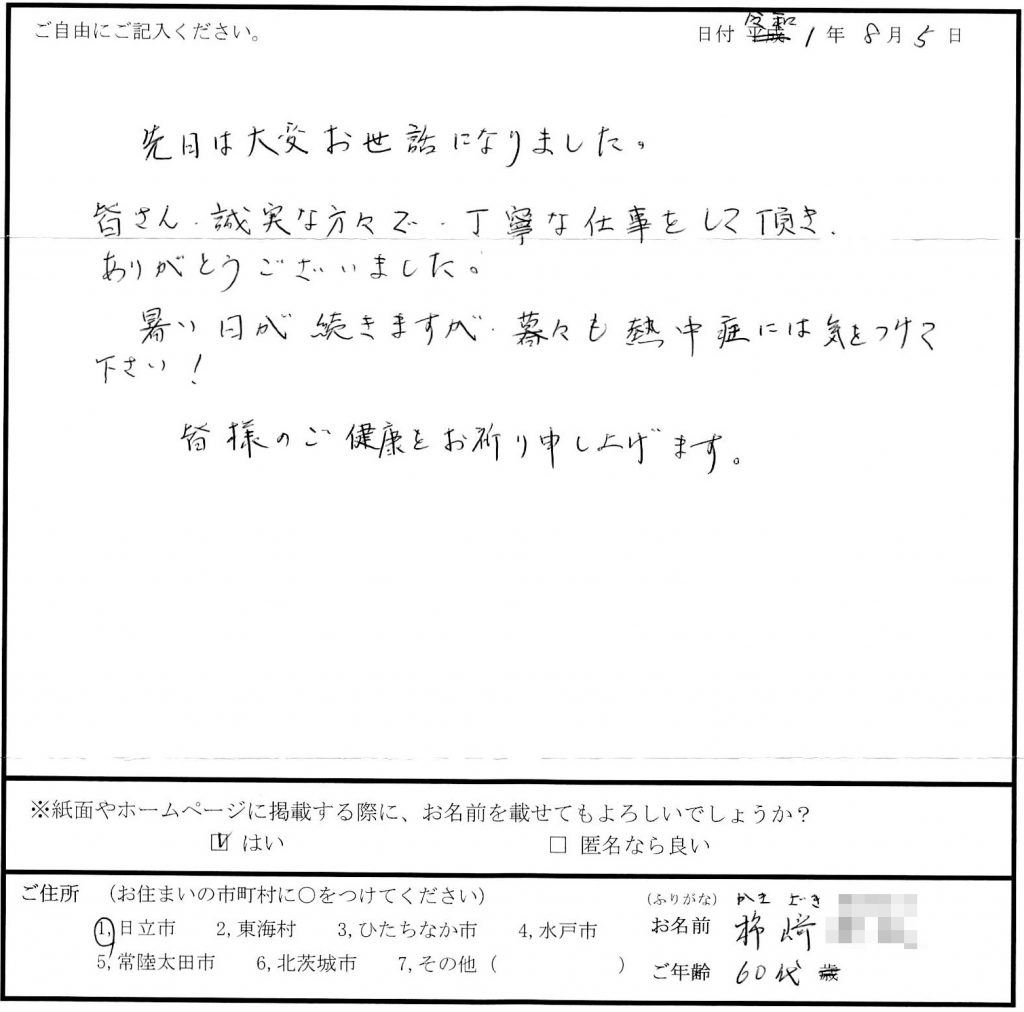 ご自由にご記入ください。
日付 令和 1 年 8 月 5 日
先日は大変お世話になりました。
皆さん、誠実な方々で、丁寧な仕事をして頂き、
ありがとうございました。
暑い日が続きますが、々も熱中症には気をつけて
下さい!
皆様のご健康をお祈り申し上げます。
※紙面やホームページに掲載する際に、お名前を載せてもよろしいでしょうか?
☑ はい □ 匿名なら良い
ご住所 (お住まいの市町村に○をつけてください)
1,日立市 2,東海村 3,ひたちなか市 4,水戸市
5,常陸太田市 6,北茨城市 7,その他 ( )
(ふりがな) かき ざき
お名前 柿﨑
ご年齢 60代 歳